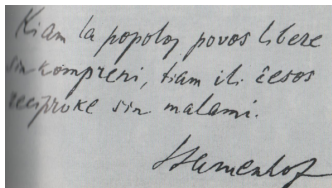 Kiam la popoloj povos libere
sin kompreni, tiam ili ĉesos
reciproke sin malami.
Zamenhof